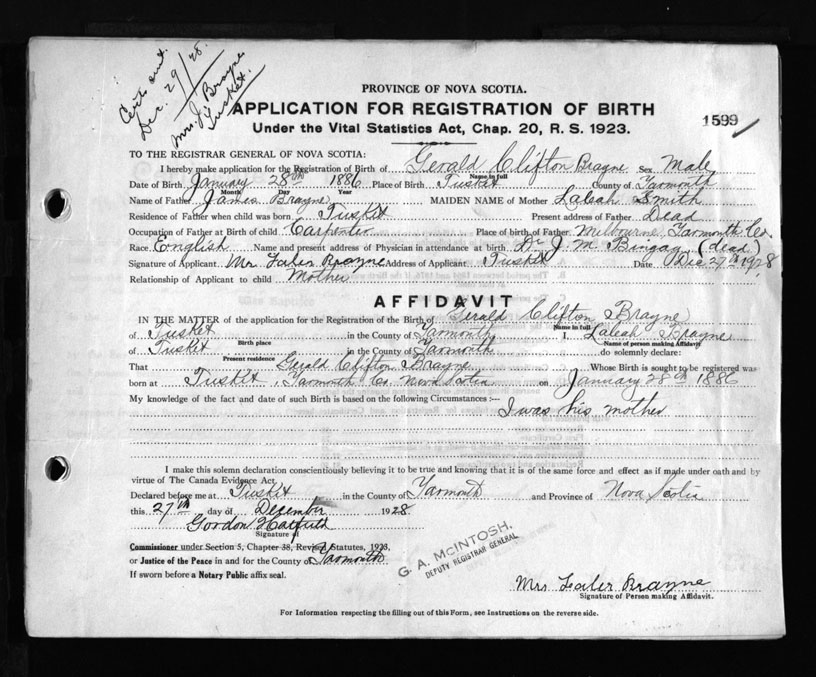 Certs out.
Dec. 29/28.
Mrs J Brayne
Tusket.
PROVINCE OF NOVA SCOTIA.
APPLICATION FOR REGISTRATION OF BIRTH
1599
Under the Vital Statistics Act, Chap. 20, R. S. 1923.
TO THE REGISTRAR GENERAL OF NOVA SCOTIA:
I hereby make application for the Registration of Birth of Gerald Clifton Brayne Sex Male
Name in full
Date of Birth January 28th 1886 Place of Birth Tusket County of Yarmouth
Month Day Year
Name of Father James Brayne MAIDEN NAME of Mother Laleah Smith
Residence of Father when child was born Tusket Present address of Father Dead
Occupation of Father at Birth of child Carpenter Place of birth of Father Melbourne, Yarmouth Co.
Race English Name and present address of Physician in attendance at birth Dr J. M. Bingay (dead)
Signature of Applicant Mrs Brayne Address of Applicant Tusket Date Dec 27th 1928
Relationship of Applicant to child Mother
AFFIDAVIT
IN THE MATTER of the application for the Registration of the Birth of Gerald Clifton Brayne
Name in full
of Tusket in the County of Yarmouth I, Laleah Brayne
Birth place Name of person making Affidavit
of Tusket in the County of Yarmouth do solemnly declare:
Present residence
That Gerald Clifton Brayne Whose Birth is sought to be registered was
born at Tusket, Yarmouth Co. Nova Scotia on January 28th 1886
My knowledge of the fact and date of such Birth is based on the following Circumstances:—
I was his mother
I make this solemn declaration conscientiously believing it to be true and knowing that it is of the same force and effect as if made under oath and by
virtue of The Canada Evidence Act.
Declared before me at Tusket in the County of Yarmouth and Province of Nova Scotia
this 27th day of December 1928
Gordon Hatfield
Signature of
Commissioner under Section 5, Chapter 38, Revised Statutes, 1923,
or Justice of the Peace in and for the County of Yarmouth
If sworn before a Notary Public affix seal.
G. A. McINTOSH.
DEPUTY REGISTRAR GENERAL
Mrs Brayne
Signature of Person making Affidavit.
For Information respecting the filling out of this Form, see Instructions on the reverse side.